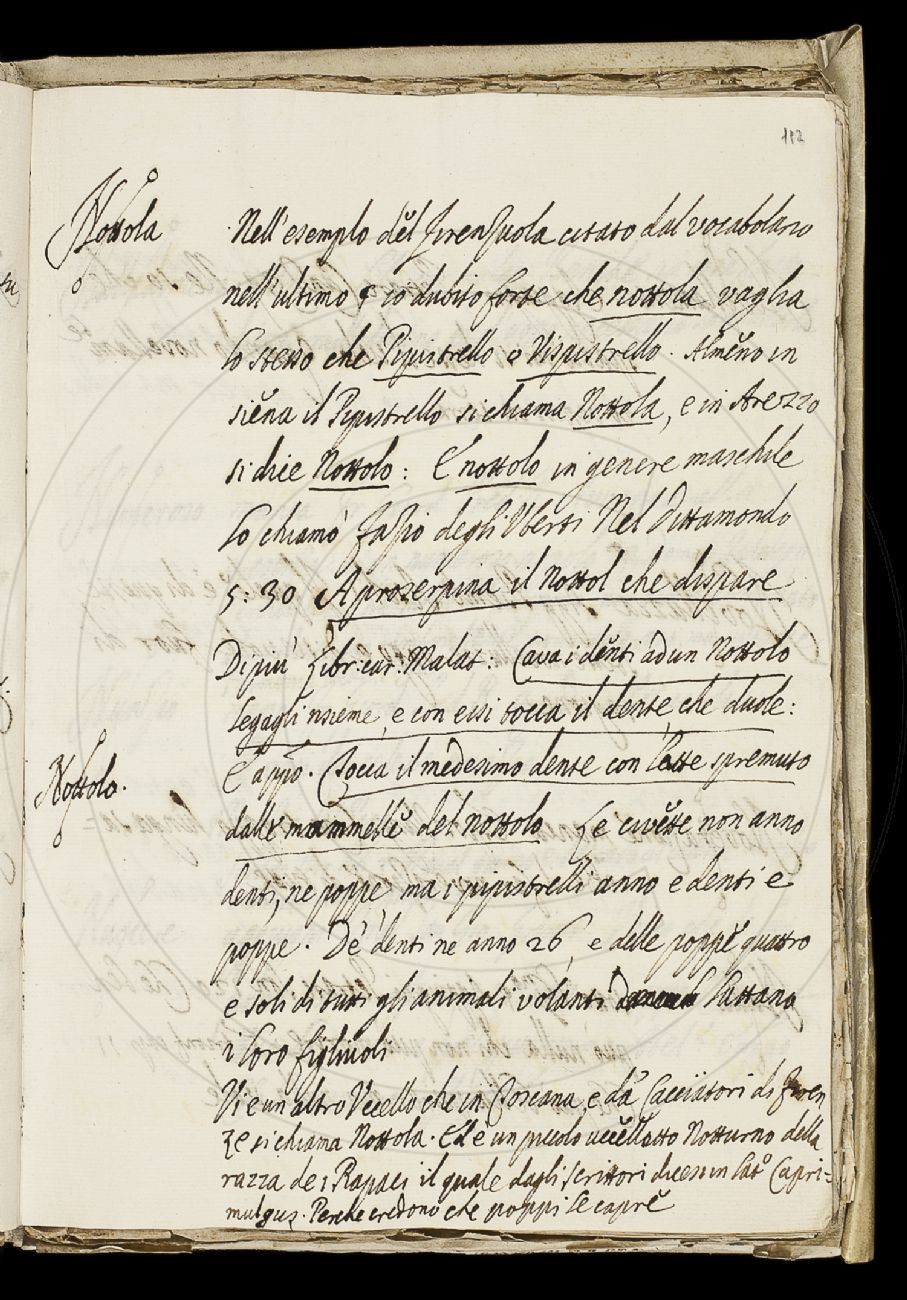 112
Nottola
Nell'esemplo del Firenzuola citato dal vocabolario
nell'ultimo § io dubito forte che nottola vaglia
lo stesso che Pipistrello o Vispistrello. Almeno in
siena il Pipistrello si chiama Nottola, e in Arezzo
si dice Nottolo: E nottolo in genere maschile
lo chiamò Fazio degli Uberti Nel Dittamondo
5: 30 A proserpina il nottol che dispare
Di più Libr: cur: Malat: Cava i denti ad un Nottolo
legagli nsieme, e con essi tocca il dente, che duole:
Nottolo.
E appo. Tocca il medesimo dente con latte spremuto
dalle mammelle del nottolo Le civette non anno
denti, ne poppe ma i pipistrelli anno e denti e
poppe. De' denti ne anno 26, e delle poppe quattro
e soli di tutti gli animali volanti lattano
i loro figliuoli
Vi e un altro Uccello che in Toscana, e da' Cacciatori di Firen
ze si chiama Nottola. Ed è un piccolo uccelletto Notturno della
razza de i Rapaci il quale dagli scrittori dicesi in lat.o Capri=
mulgus. Perche credono che poppi le capre